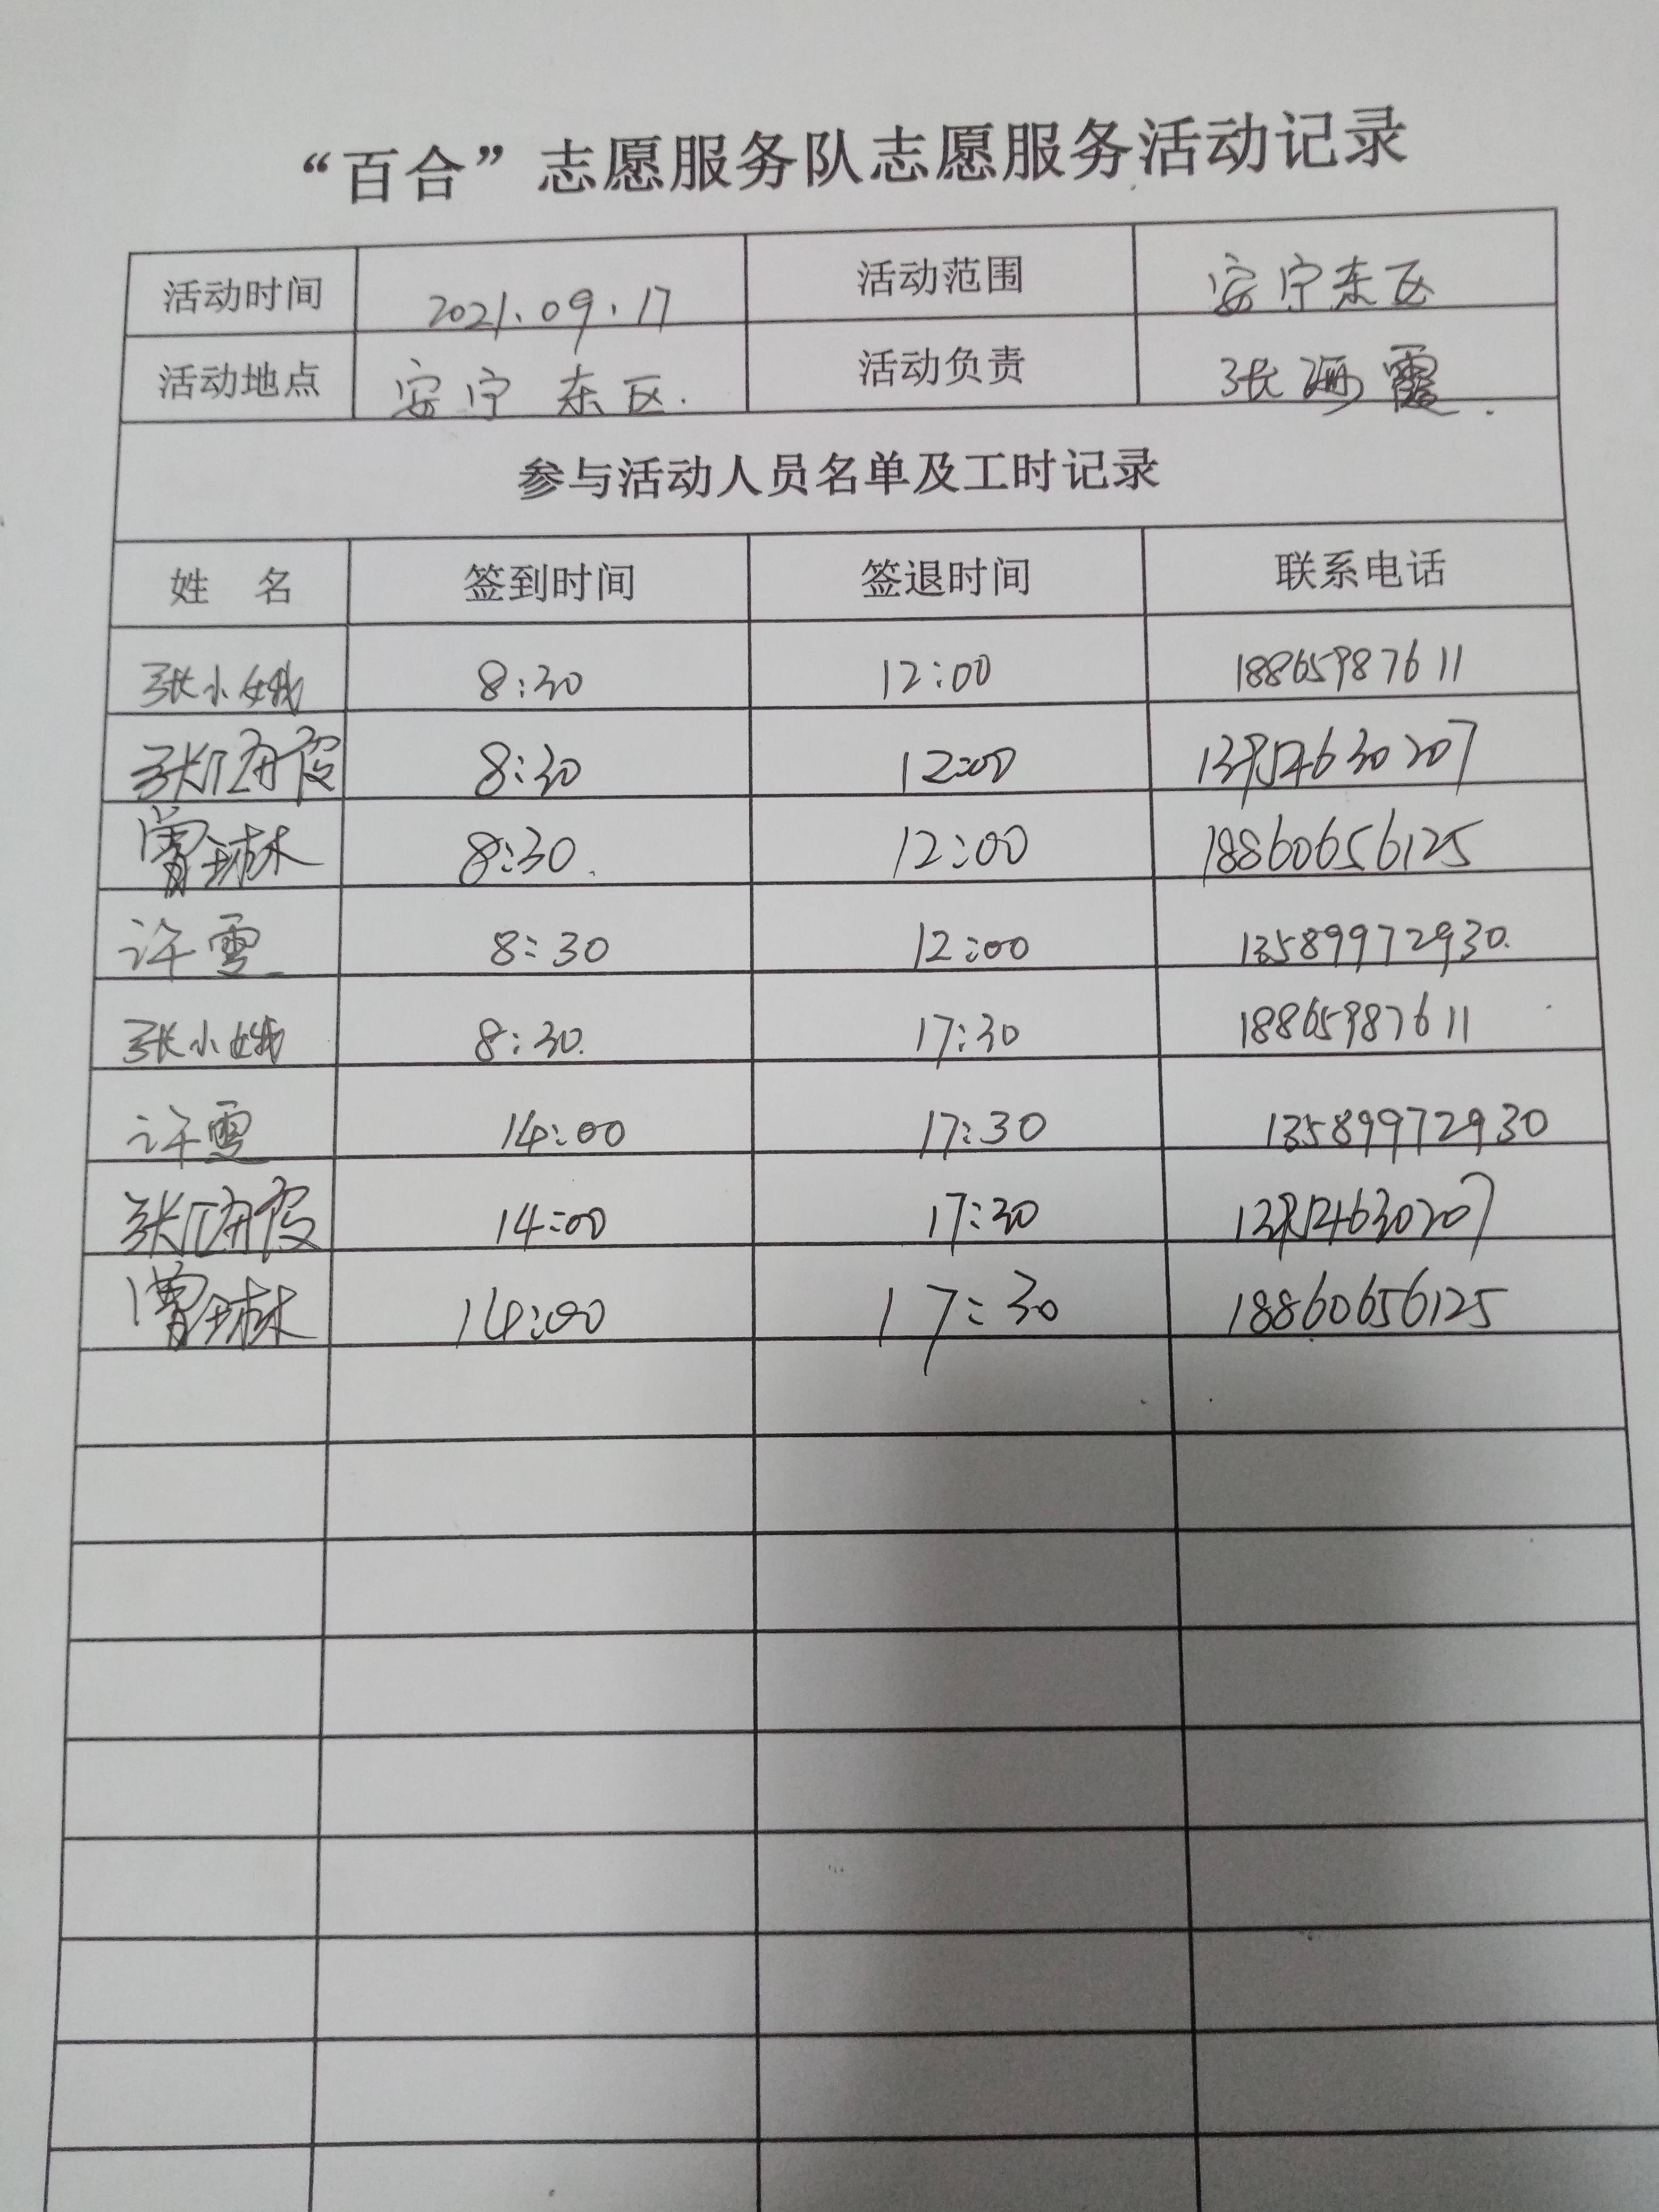 “百合”志愿服务队志愿服务活动记录
活动时间 2021.09.17 活动范围 安宁东区
活动地点 安宁东区. 活动负责 张 霞.
参与活动人员名单及工时记录
姓 名 签到时间 签退时间 联系电话
张小娥 8:30 12:00 18865987611
张 8:30 12:00
曾琳 8:30. 12:00 18860656125
许雪 8:30 12:00 13589972930.
张小娥 8:30. 17:30 18865987611
许雪 14:00 17:30 13589972930
张 14:00 17:30
曾琳 14:00 17:30 18860656125